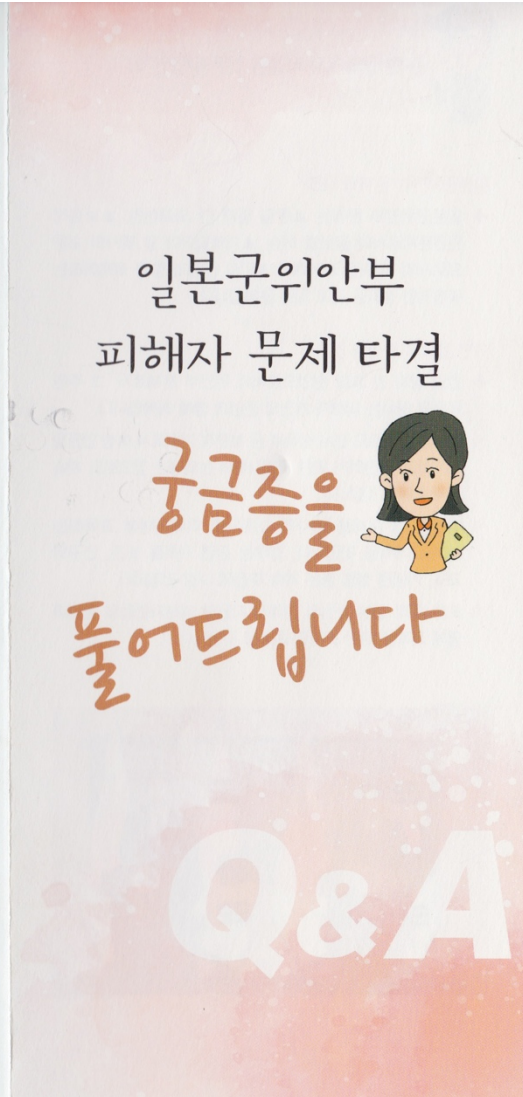 일본군위안부
피해자 문제 타결
궁금증을
풀어드립니다
Q&A